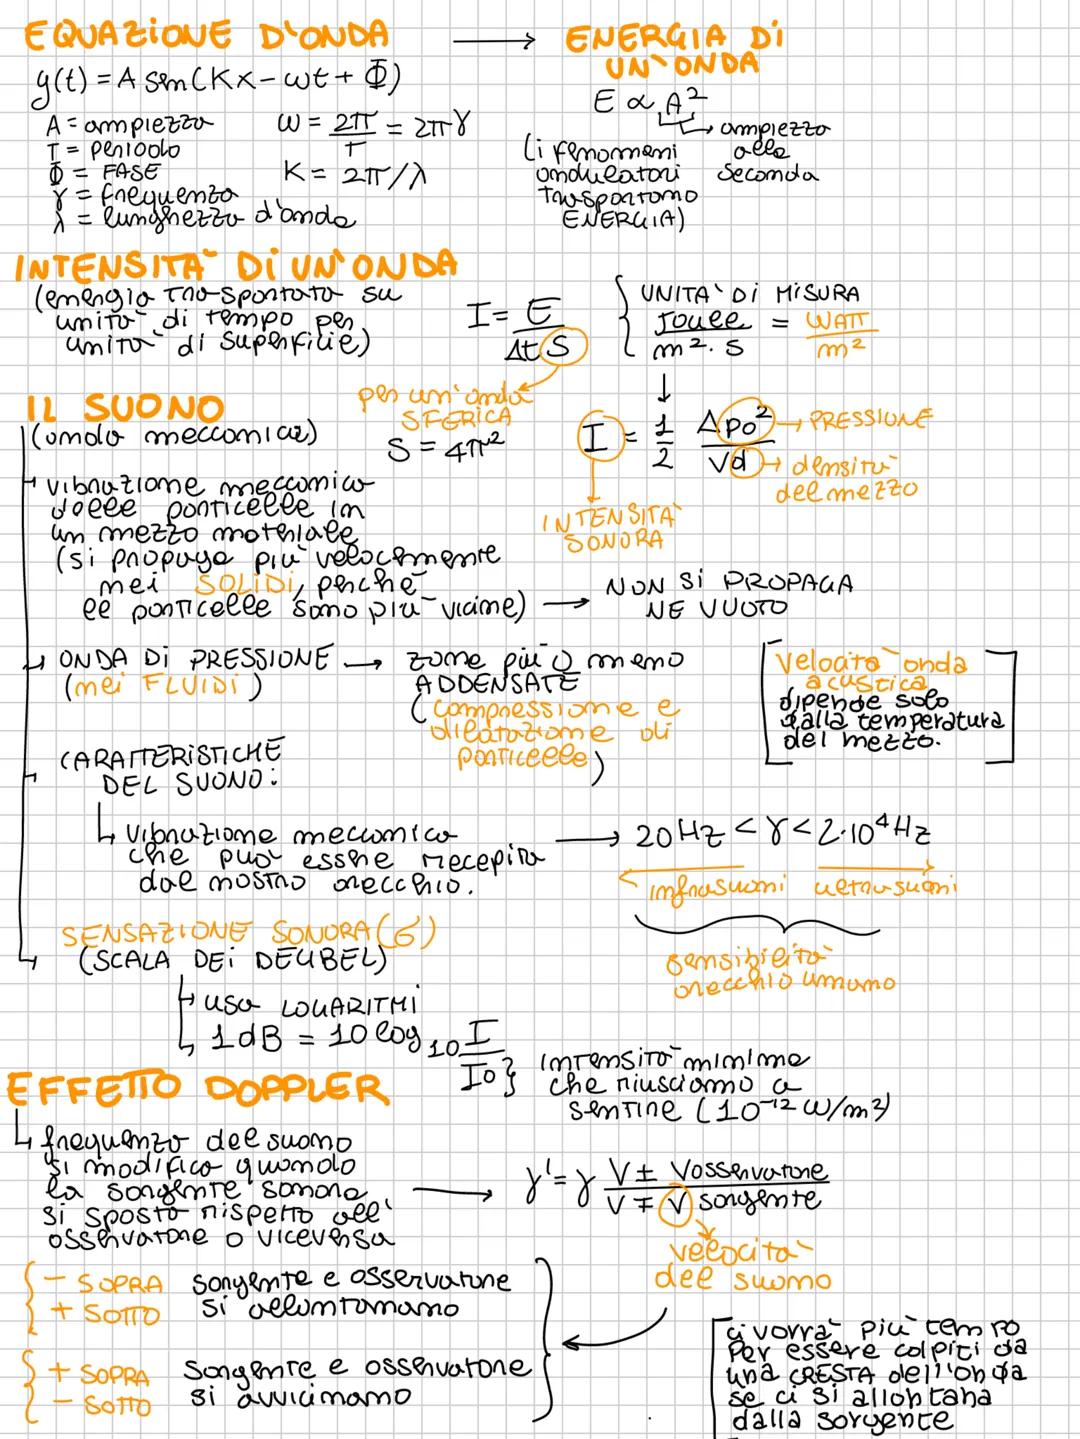 EQUAZIONE D'ONDA → ENERGIA DI
UN'ONDA
y(t) = A sen(Kx - ωt + Φ)
E ∝ A²
ampiezza
alla
seconda
(i fenomeni
ondulatori
trasportano
ENERGIA)
A = ampiezza
T = periodo
Φ = FASE
γ = frequenza
λ = lunghezza d'onda
ω = 2π/T = 2πγ
K = 2π/λ
INTENSITA' DI UN'ONDA
(energia trasportata su
unità di tempo per
unità di superficie)
I = E/Δt S
UNITA' DI MISURA
Joule/m²·s = WATT/m²
per un'onda
SFERICA
S = 4πr²
I = 1/2 Δpo²/vd
PRESSIONE
densità
del mezzo
INTENSITA'
SONORA
IL SUONO
(onda meccanica)
vibrazione meccanica
delle particelle in
un mezzo materiale
(si propaga più velocemente
nei SOLIDI, perché
le particelle sono più vicine) → NON SI PROPAGA
NE VUOTO
ONDA DI PRESSIONE → zone più o meno
(nei FLUIDI) ADDENSATE
(compressione e
dilatazione di
particelle)
Velocità onda
acustica
dipende solo
dalla temperatura
del mezzo.
CARATTERISTICHE
DEL SUONO:
vibrazione meccanica
che può essere recepita
dal nostro orecchio.
→ 20Hz < γ < 2·10⁴Hz
infrasuoni ultrasuoni
sensibilità
orecchio umano
SENSAZIONE SONORA (σ)
(SCALA DEI DECIBEL)
usa LOGARITMI
1dB = 10 log₁₀ I/I₀
intensità minima
che riusciamo a
sentire (10⁻¹² W/m²)
EFFETTO DOPPLER
frequenza del suono
si modifica quando
la sorgente sonora
si sposta rispetto all'
osservatore o viceversa
→ γ' = γ V ± Vosservatore / V ∓ V sorgente
velocità
del suono
- SOPRA
+ SOTTO
sorgente e osservatore
si allontanano
+ SOPRA
- SOTTO
sorgente e osservatore
si avvicinano
ci vorrà più tempo
per essere colpiti da
una CRESTA dell'onda
se ci si allontana
dalla sorgente